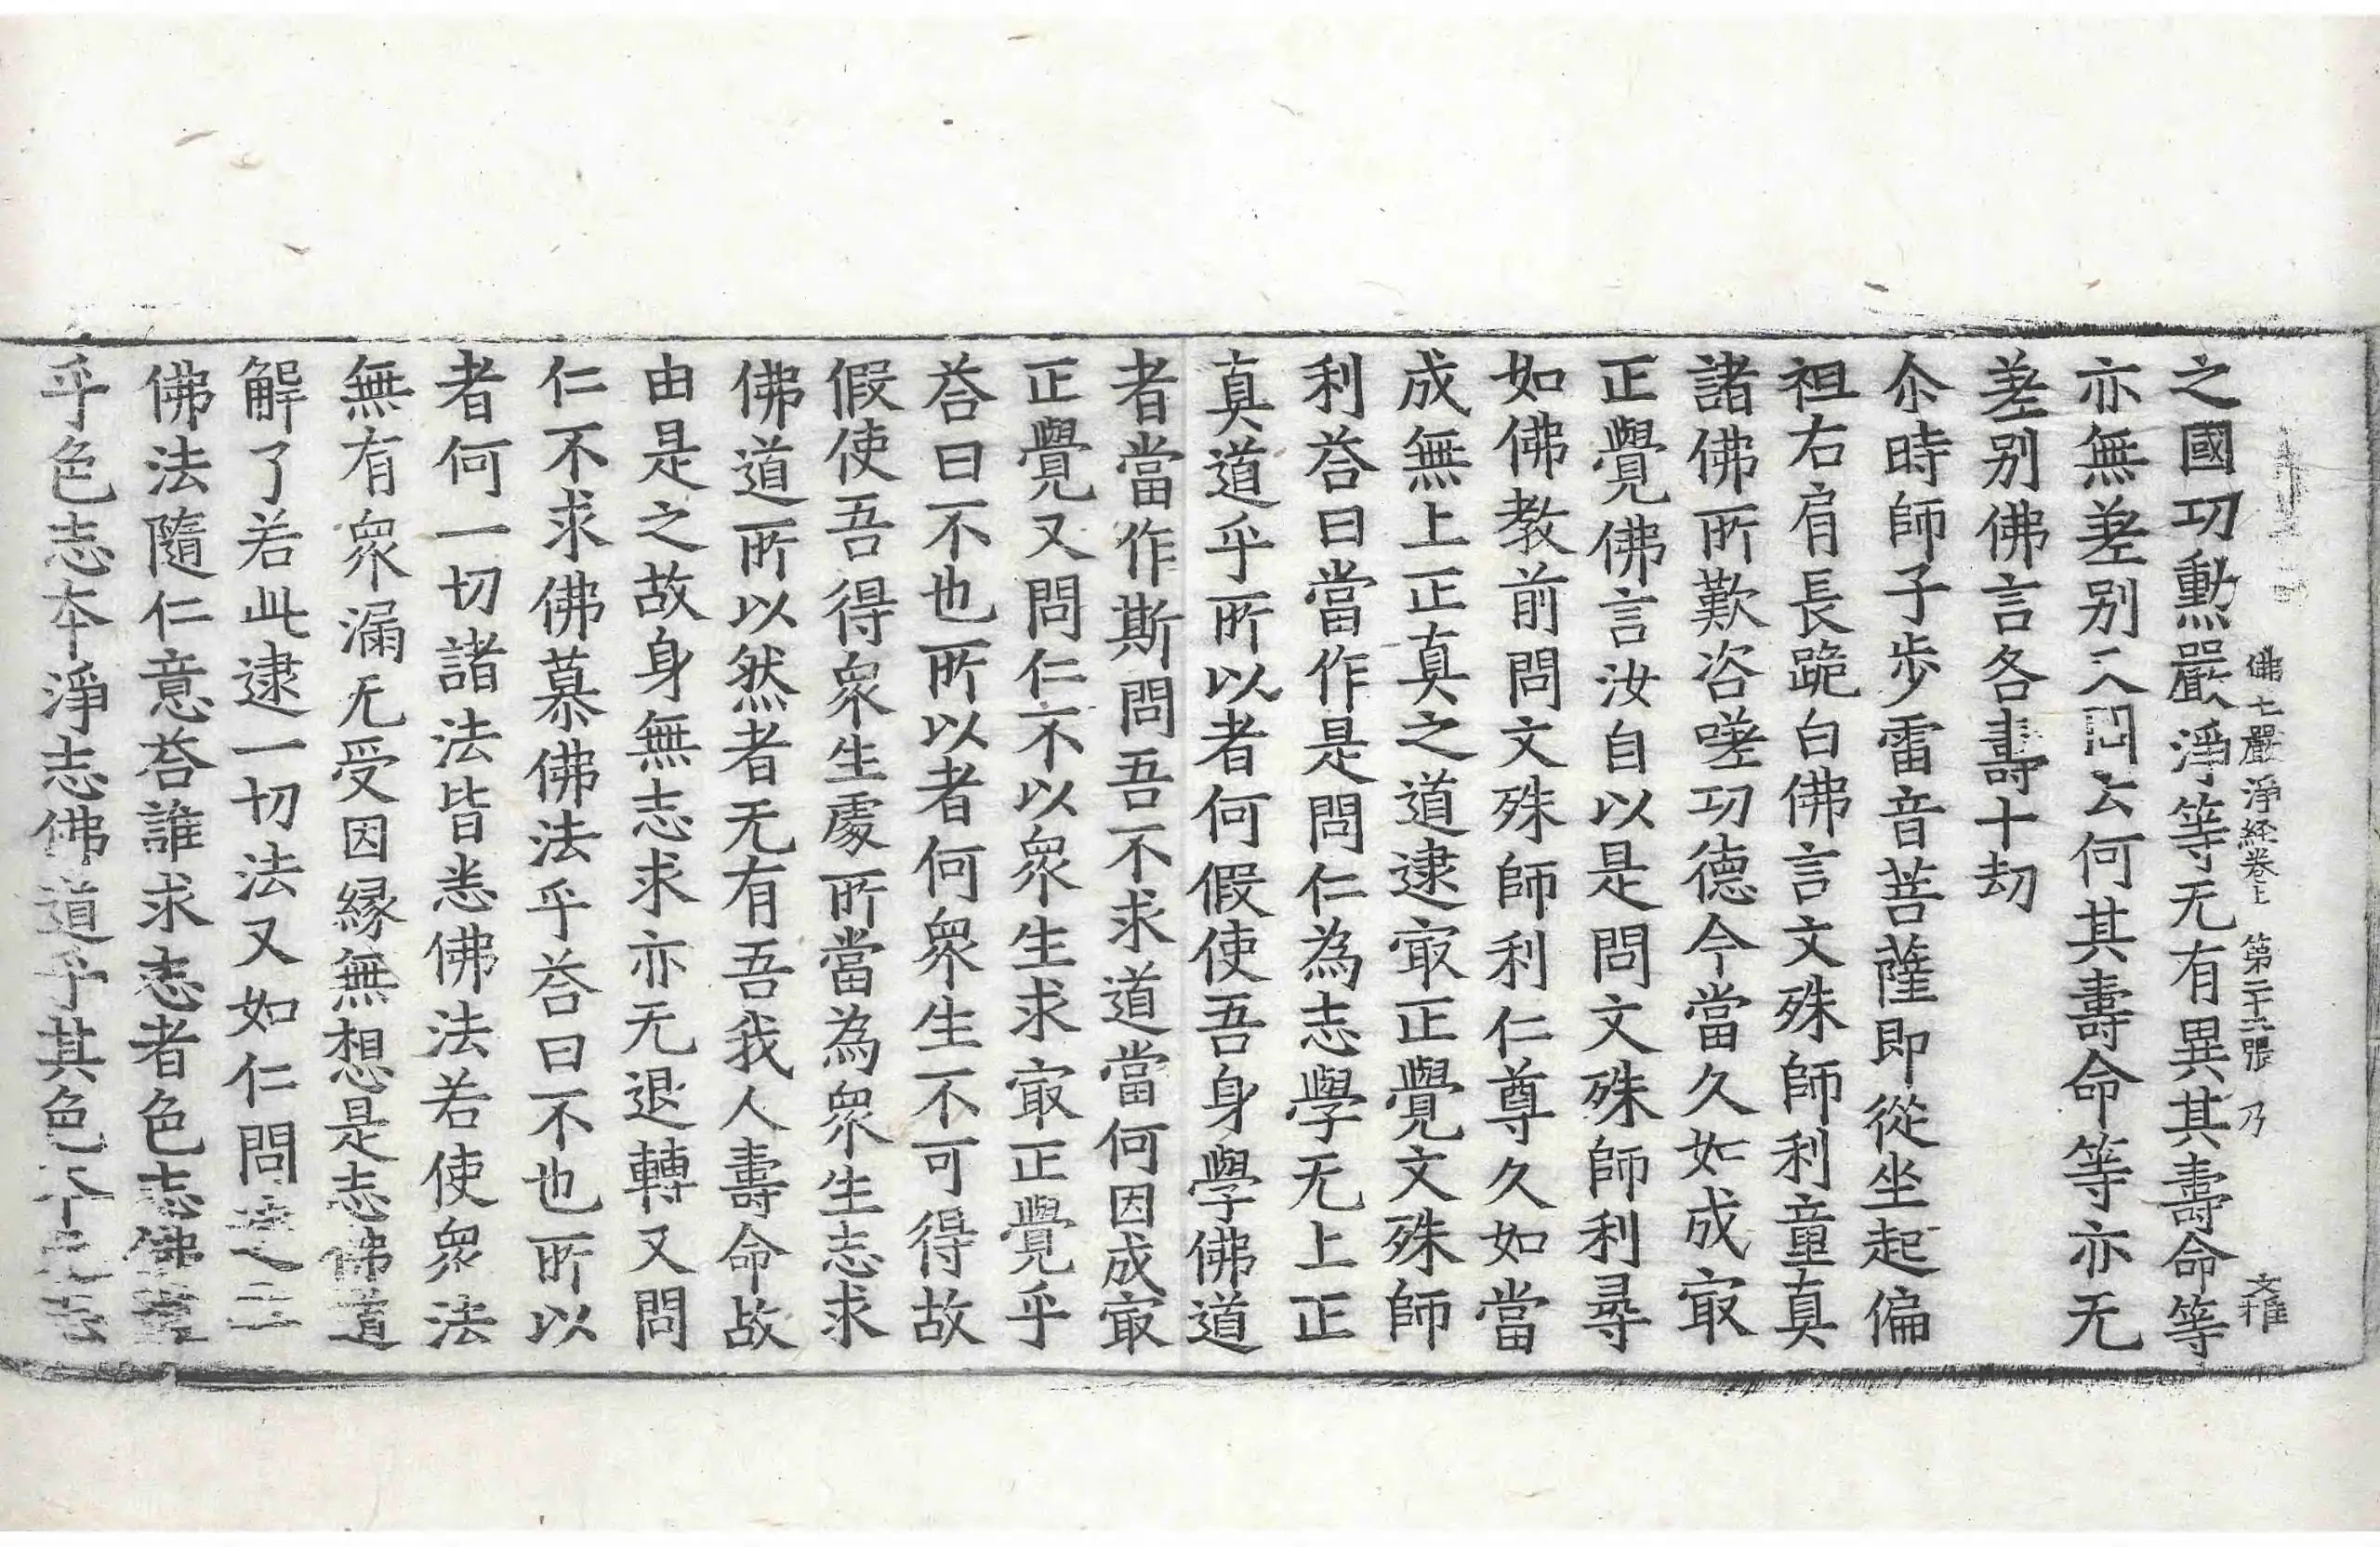 佛土嚴淨経卷上 第二十二張 乃
之國功勳嚴淨等无有異其壽命等
亦無差别又問云何其壽命等亦无
差别佛言各壽十劫
尒時師子步雷音菩薩即從坐起偏
袒右肩長跪白佛言文殊師利童真
諸佛所歎咨嗟功德今當久如成㝡
正覺佛言汝自以是問文殊師利尋
如佛教前問文殊師利仁尊久如當
成無上正真之道逮㝡正覺文殊師
利荅曰當作是問仁為志學无上正
真道乎所以者何假使吾身學佛道
者當作斯問吾不求道當何因成㝡
正覺又問仁不以衆生求㝡正覺乎
荅曰不也所以者何衆生不可得故
假使吾得衆生處所當為衆生志求
佛道所以然者无有吾我人壽命故
由是之故身無志求亦无退轉又問
仁不求佛慕佛法乎荅曰不也所以
者何一切諸法皆悉佛法若使衆法
無有衆漏无受因縁無想是志佛道
解了若此逮一切法又如仁問
佛法隨仁意荅誰求志者色志佛
乎色志本淨志佛道乎其色